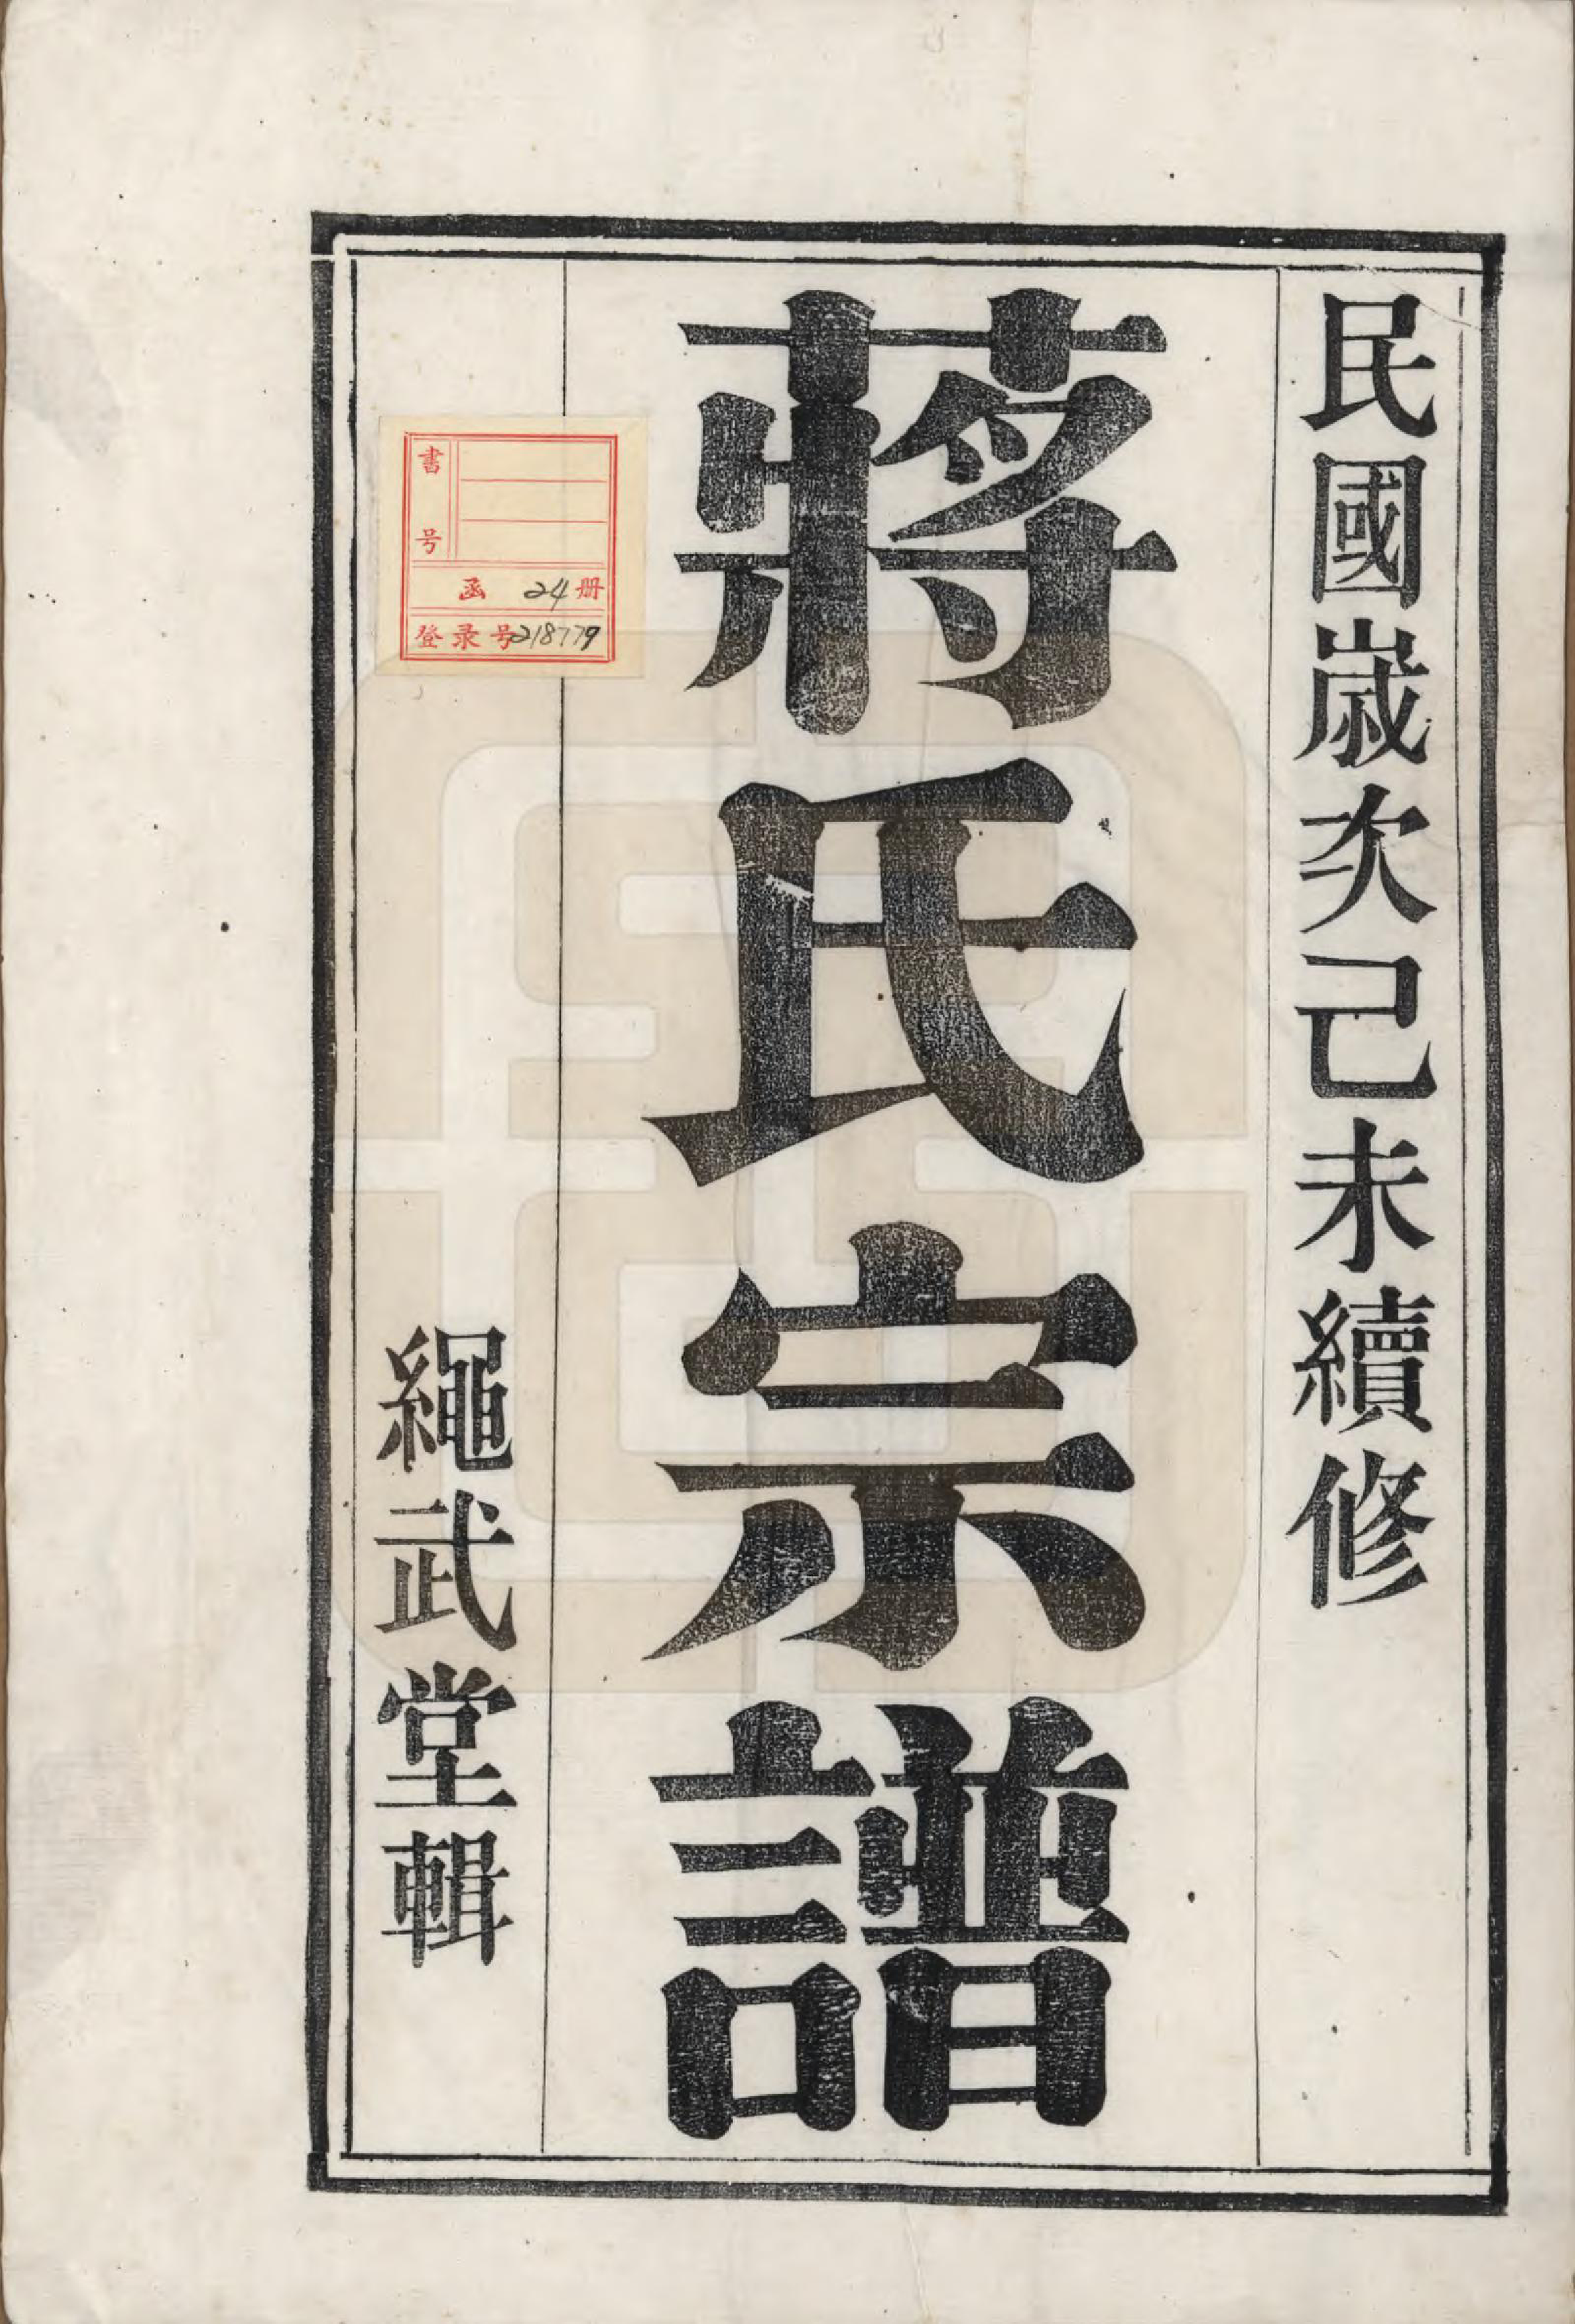 民國歲次己未續修
蔣氏宗譜
繩武堂輯
書号
函 24 册
登录号218779